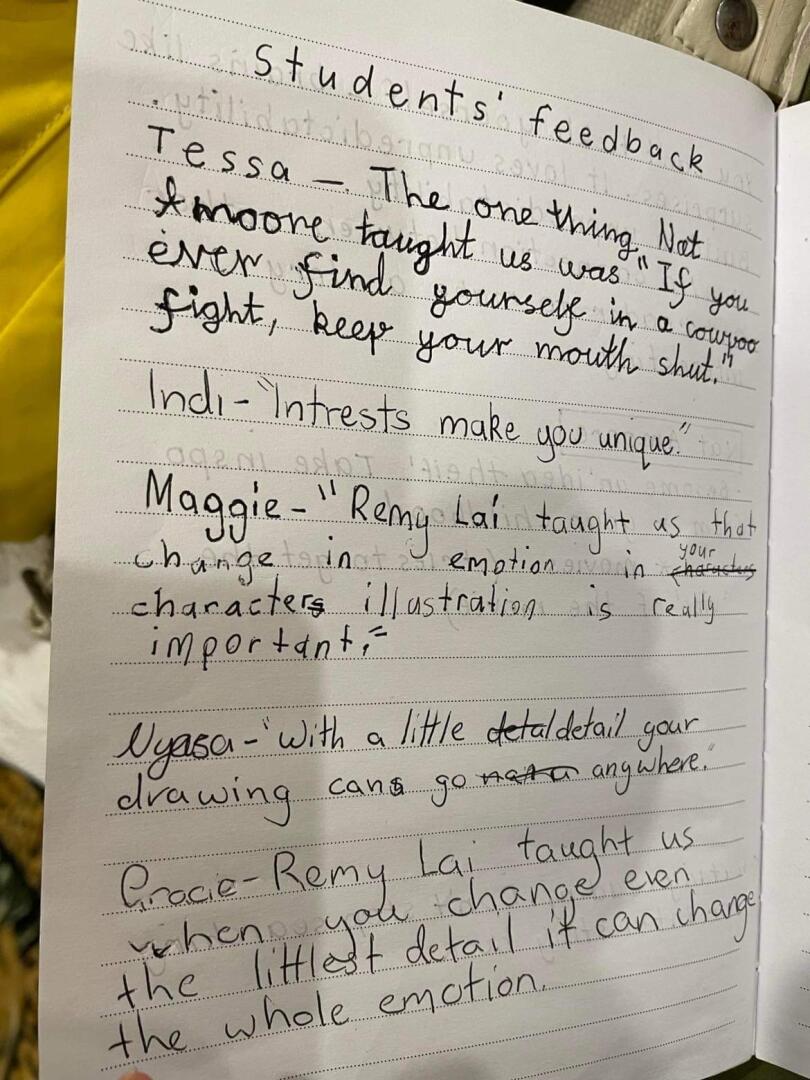 Students' feedback
Tessa - The one thing Nat
Amoore taught us was "If you
ever find yourself in a cowpoo
fight, keep your mouth shut."
Indi - "Intrests make you unique."
Maggie - "Remy Lai taught us that
change in emotion in your
characters illustration is really
important."
Nyasa - "With a little detail your
drawing can go anywhere."
Gracie - Remy Lai taught us
when you change even
the littlest detail it can change
the whole emotion.